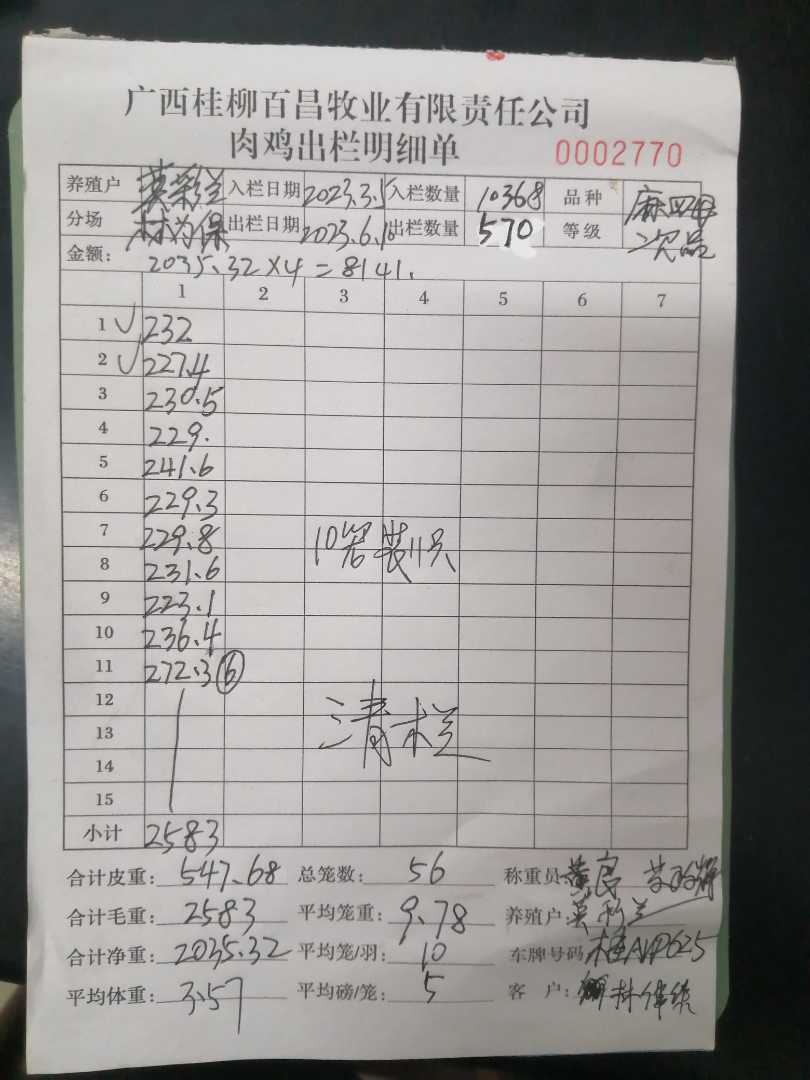 广西桂柳百昌牧业有限责任公司
肉鸡出栏明细单 0002770
养殖户 莫彩兰 入栏日期 2023.3.5 入栏数量 10368 品种 麻四母
分场 林为保 出栏日期 2023.6.10 出栏数量 570 等级 次品
金额: 2035.32×4=8141.
1 2 3 4 5 6 7
1 232
2 227.4
3 230.5
4 229.
5 241.6
6 229.3
7 229.8 10笼装11只
8 231.6
9 223.1
10 236.4
11 272.3 6
12 清栏
13
14
15
小计 2583
合计皮重: 547.68 总笼数: 56 称重员
合计毛重: 2583 平均笼重: 9.78 养殖户: 莫彩兰
合计净重: 2035.32 平均笼/羽: 10 车牌号码 桂AVP625
平均体重: 3.57 平均磅/笼: 5 客 户: